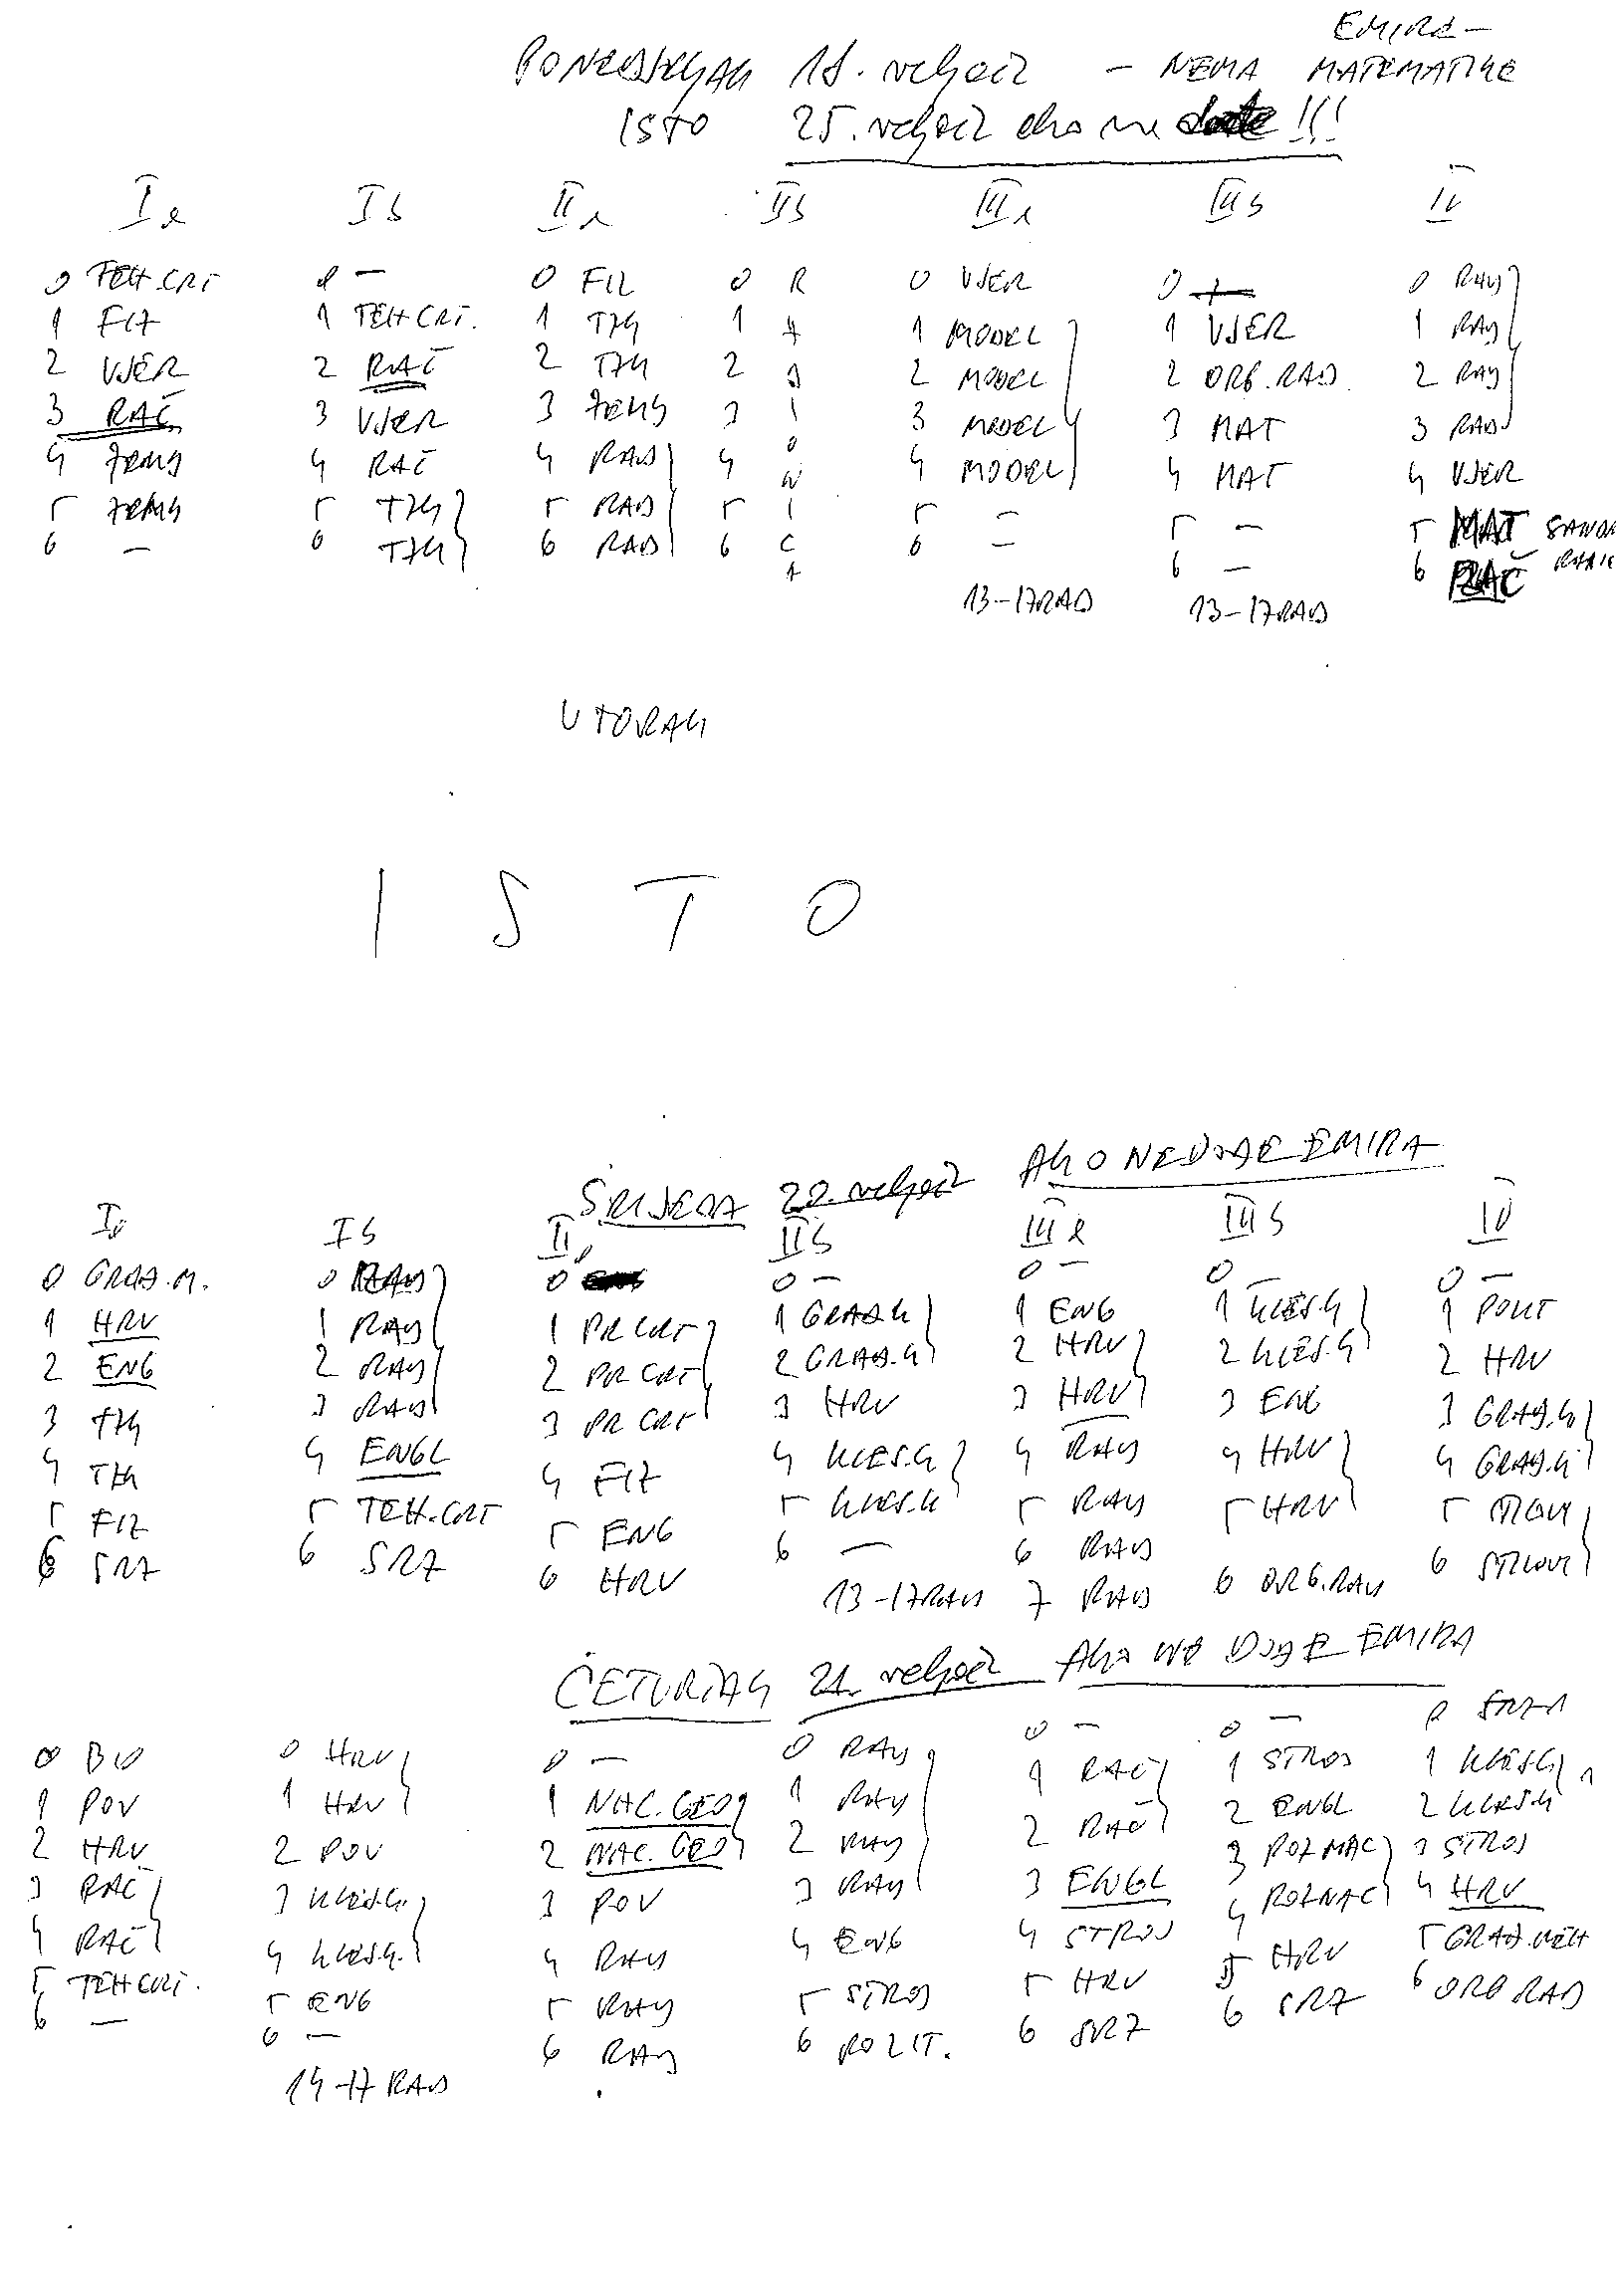 EMIRA —
PONEDJELJAK 18. veljače — NEMA MATEMATIKE
ISTO 25. veljače ako ne !!!
I a I b II a II b III a III b IV
0 TEH.CRT 0 — 0 FIZ 0 R 0 VJER 0 — 0 RAD
1 FIZ 1 TEH CRT. 1 TZK 1 A 1 MODEL 1 VJER 1 RAD
2 VJER 2 RAČ 2 TZK 2 D 2 MODEL 2 ORG.RAD. 2 RAD
3 RAČ 3 VJER 3 ZEMLJ 3 I 3 MODEL 3 MAT 3 RAD
4 ZEMLJ 4 RAČ 4 RAD 4 O 4 MODEL 4 MAT 4 VJER
5 ZEMLJ 5 TZK 5 RAD 5 N I 5 — 5 — 5 MAT
6 — 6 TZK 6 RAD 6 C A 6 — 6 — 6 RAČ
13-17 RAD 13-17 RAD
UTORAK
ISTO
SRIJEDA 20. veljače AKO NE DOĐE EMIRA
I a I b II a II b III a III b IV
0 GRAĐ.M. 0 RAD 0 0 — 0 — 0 — 0 —
1 HRV 1 RAD 1 PR CRT 1 GRAĐ.K 1 ENG 1 KLES.K 1 POLIT
2 ENG 2 RAD 2 PR CRT 2 GRAĐ.K 2 HRV 2 KLES.K 2 HRV
3 TZK 3 RAD 3 PR CRT 3 HRV 3 HRV 3 ENG 3 GRAĐ.K
4 TZK 4 ENGL 4 FIZ 4 KLES.K 4 RAD 4 HRV 4 GRAĐ.K
5 FIZ 5 TEH.CRT 5 ENG 5 KLES.K 5 RAD 5 HRV
6 SRZ 6 SRZ 6 HRV 6 — 6 RAD 6 ORG.RAD 6
13-17 RAD 7 RAD
ČETVRTAK 21. veljače AKO NE DOĐE EMIRA
0 0 HRV 0 — 0 RAD 0 — 0 — 0 SRZ-1
1 POV 1 HRV 1 NAC.GEO 1 RAD 1 RAČ 1 STROJ 1 KLES.K 1
2 HRV 2 POV 2 NAC.GEO 2 RAD 2 RAČ 2 ENGL 2 KLES.K
3 RAČ 3 KLES.K. 3 POV 3 RAD 3 ENGL 3 3 STROJ
4 RAČ 4 KLES.K. 4 RAD 4 ENG 4 STROJ 4 4 HRV
5 TEH CRT. 5 ENG 5 RAD 5 STROJ 5 HRV 5 HRV 5
6 — 6 — 6 RAD 6 POLIT. 6 SRZ 6 SRZ 6 ORG RAD
14-17 RAD